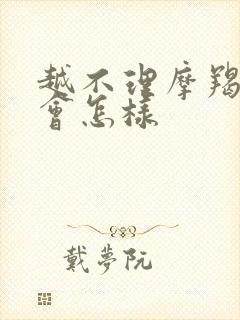 越不理摩羯
會怎樣
戴夢阮